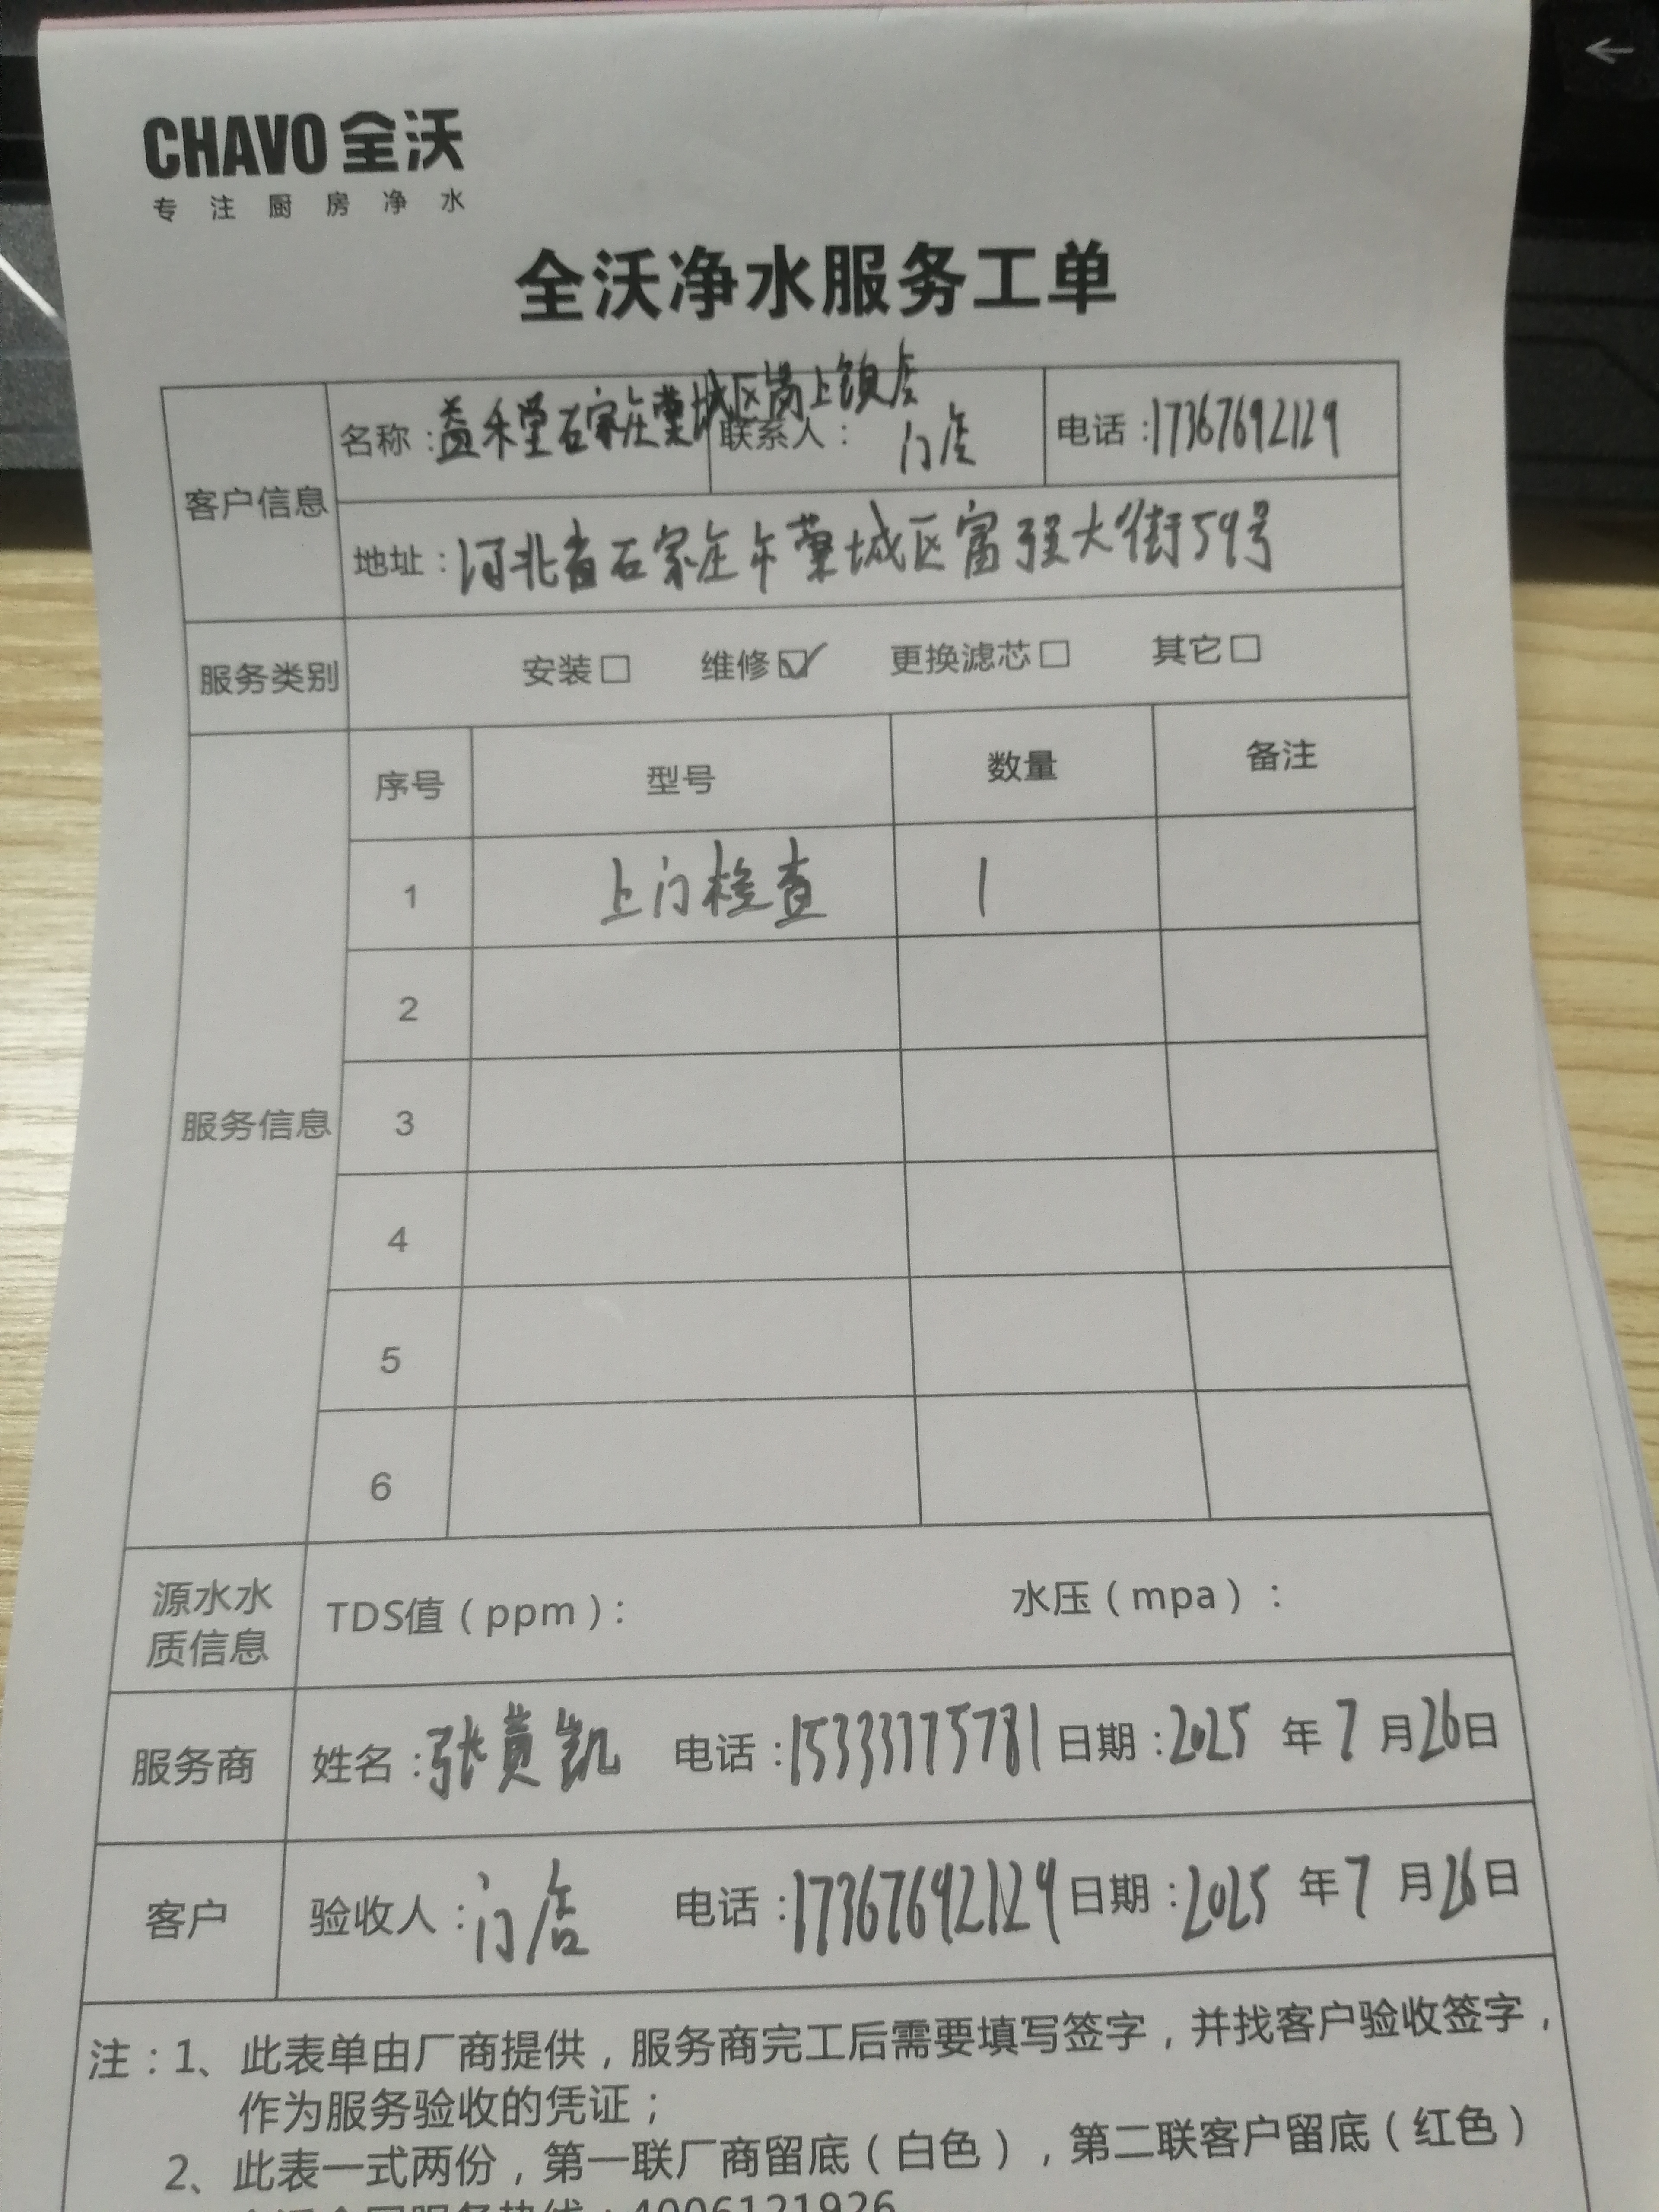 CHAVO 全沃
专注厨房净水
全沃净水服务工单
客户信息
名称：益禾堂石家庄藁城区岗上镇店 联系人：门店 电话：17367692129
地址：河北省石家庄市藁城区富强大街59号
服务类别 安装□ 维修☑ 更换滤芯□ 其它□
服务信息
序号 型号 数量 备注
1 上门检查 1
2
3
4
5
6
源水水质信息 TDS值（ppm）： 水压（mpa）：
服务商 姓名：张黄凯 电话：15333175781 日期：2025 年 7 月 26 日
客户 验收人：门店 电话：17367692129 日期：2025 年 7 月 26 日
注：1、此表单由厂商提供，服务商完工后需要填写签字，并找客户验收签字，
作为服务验收的凭证；
2、此表一式两份，第一联厂商留底（白色），第二联客户留底（红色）
全国服务热线：4006121926